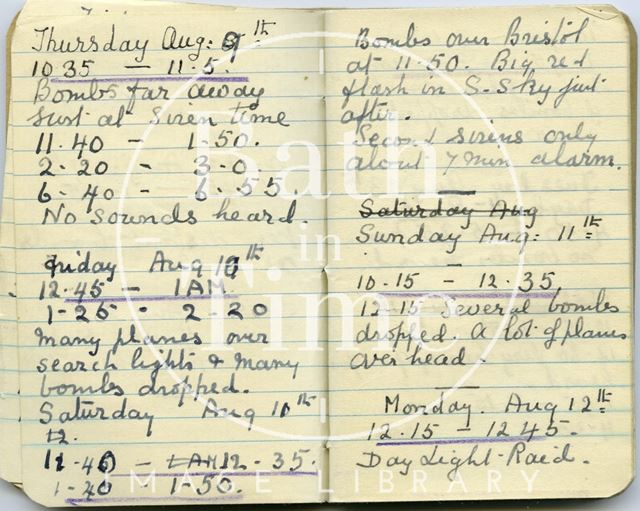 Thursday Aug: 9th
10 35 - 11.5.
Bombs far away
Just at Siren time
11.40 - 1.50.
2.20 - 3.0
6-40 - 6.55.
No sounds heard.
Friday Aug 10th
12.45 - 1AM
1-25 - 2-20
Many planes over
search lights & many
bombs dropped.
Saturday Aug 10th
12.
11-40 - 1 AM 12-35.
1-20 1-50.
Bombs over Bristol
at 11.50. Big red
flash in S-Sky just
after.
Second sirens only
about 7 min alarm.
Saturday Aug
Sunday Aug: 11th
10.15 - 12.35
12-15 Several bombs
dropped. A lot of planes
over head.
Monday. Aug 12th
12.15 - 12 45.
Day Light-Raid.
Bath
in
Time
IMAGE LIBRARY